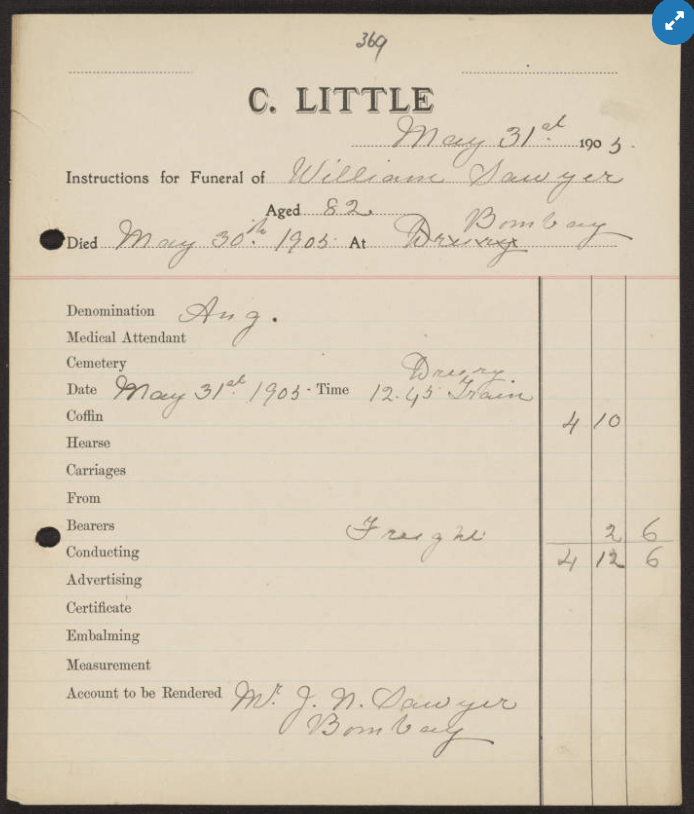 369
C. LITTLE
May 31st 1905.
Instructions for Funeral of William Sawyer
Aged 82.
Bombay
Died May 30th. 1905 At Drury
Denomination Ang.
Medical Attendant
Cemetery
Drury
Date May 31st. 1905. Time 12.45 Train
Coffin 4 10
Hearse
Carriages
From
Bearers Freight 2 6
Conducting 4 12 6
Advertising
Certificate
Embalming
Measurement
Account to be Rendered Mr. J. N. Sawyer
Bombay